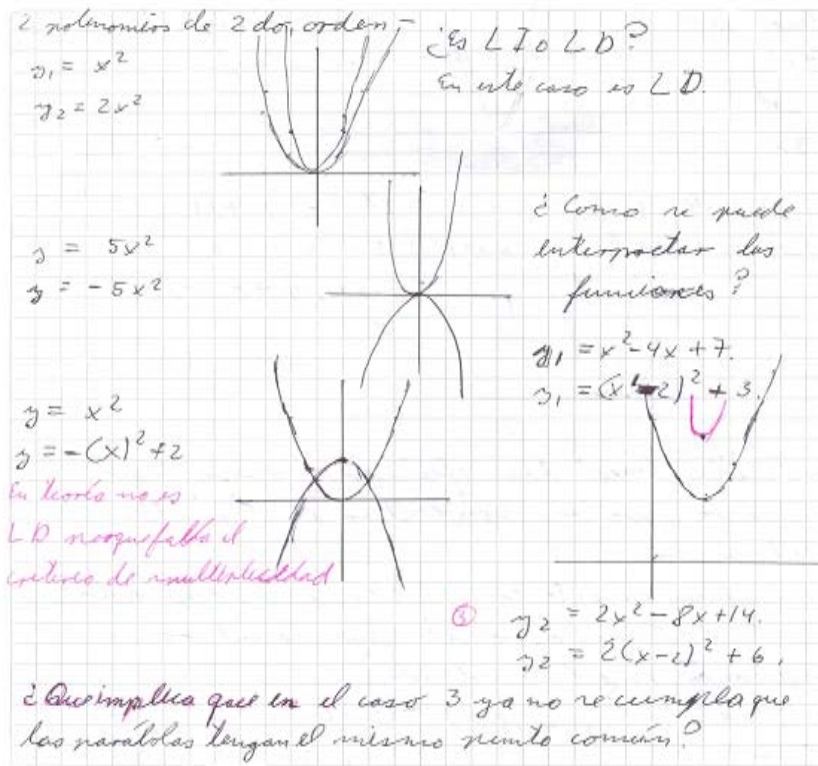 2 polinomios de 2do. orden -
¿Es LI o LD?
y₁ = x²
En este caso es LD.
y₂ = 2x²
¿Como se puede
interpretar las
funciones?
y = 5x²
y = -5x²
y₁ = x² - 4x + 7.
y₁ = (x - 2)² + 3.
y = x²
y = -(x)² + 2
En teoría no es
LD porque falla el
criterio de multiplicidad
③ y₂ = 2x² - 8x + 14.
y₂ = 2(x - 2)² + 6.
¿Que implica que en el caso 3 ya no se cumpla que
las parábolas tengan el mismo punto común?